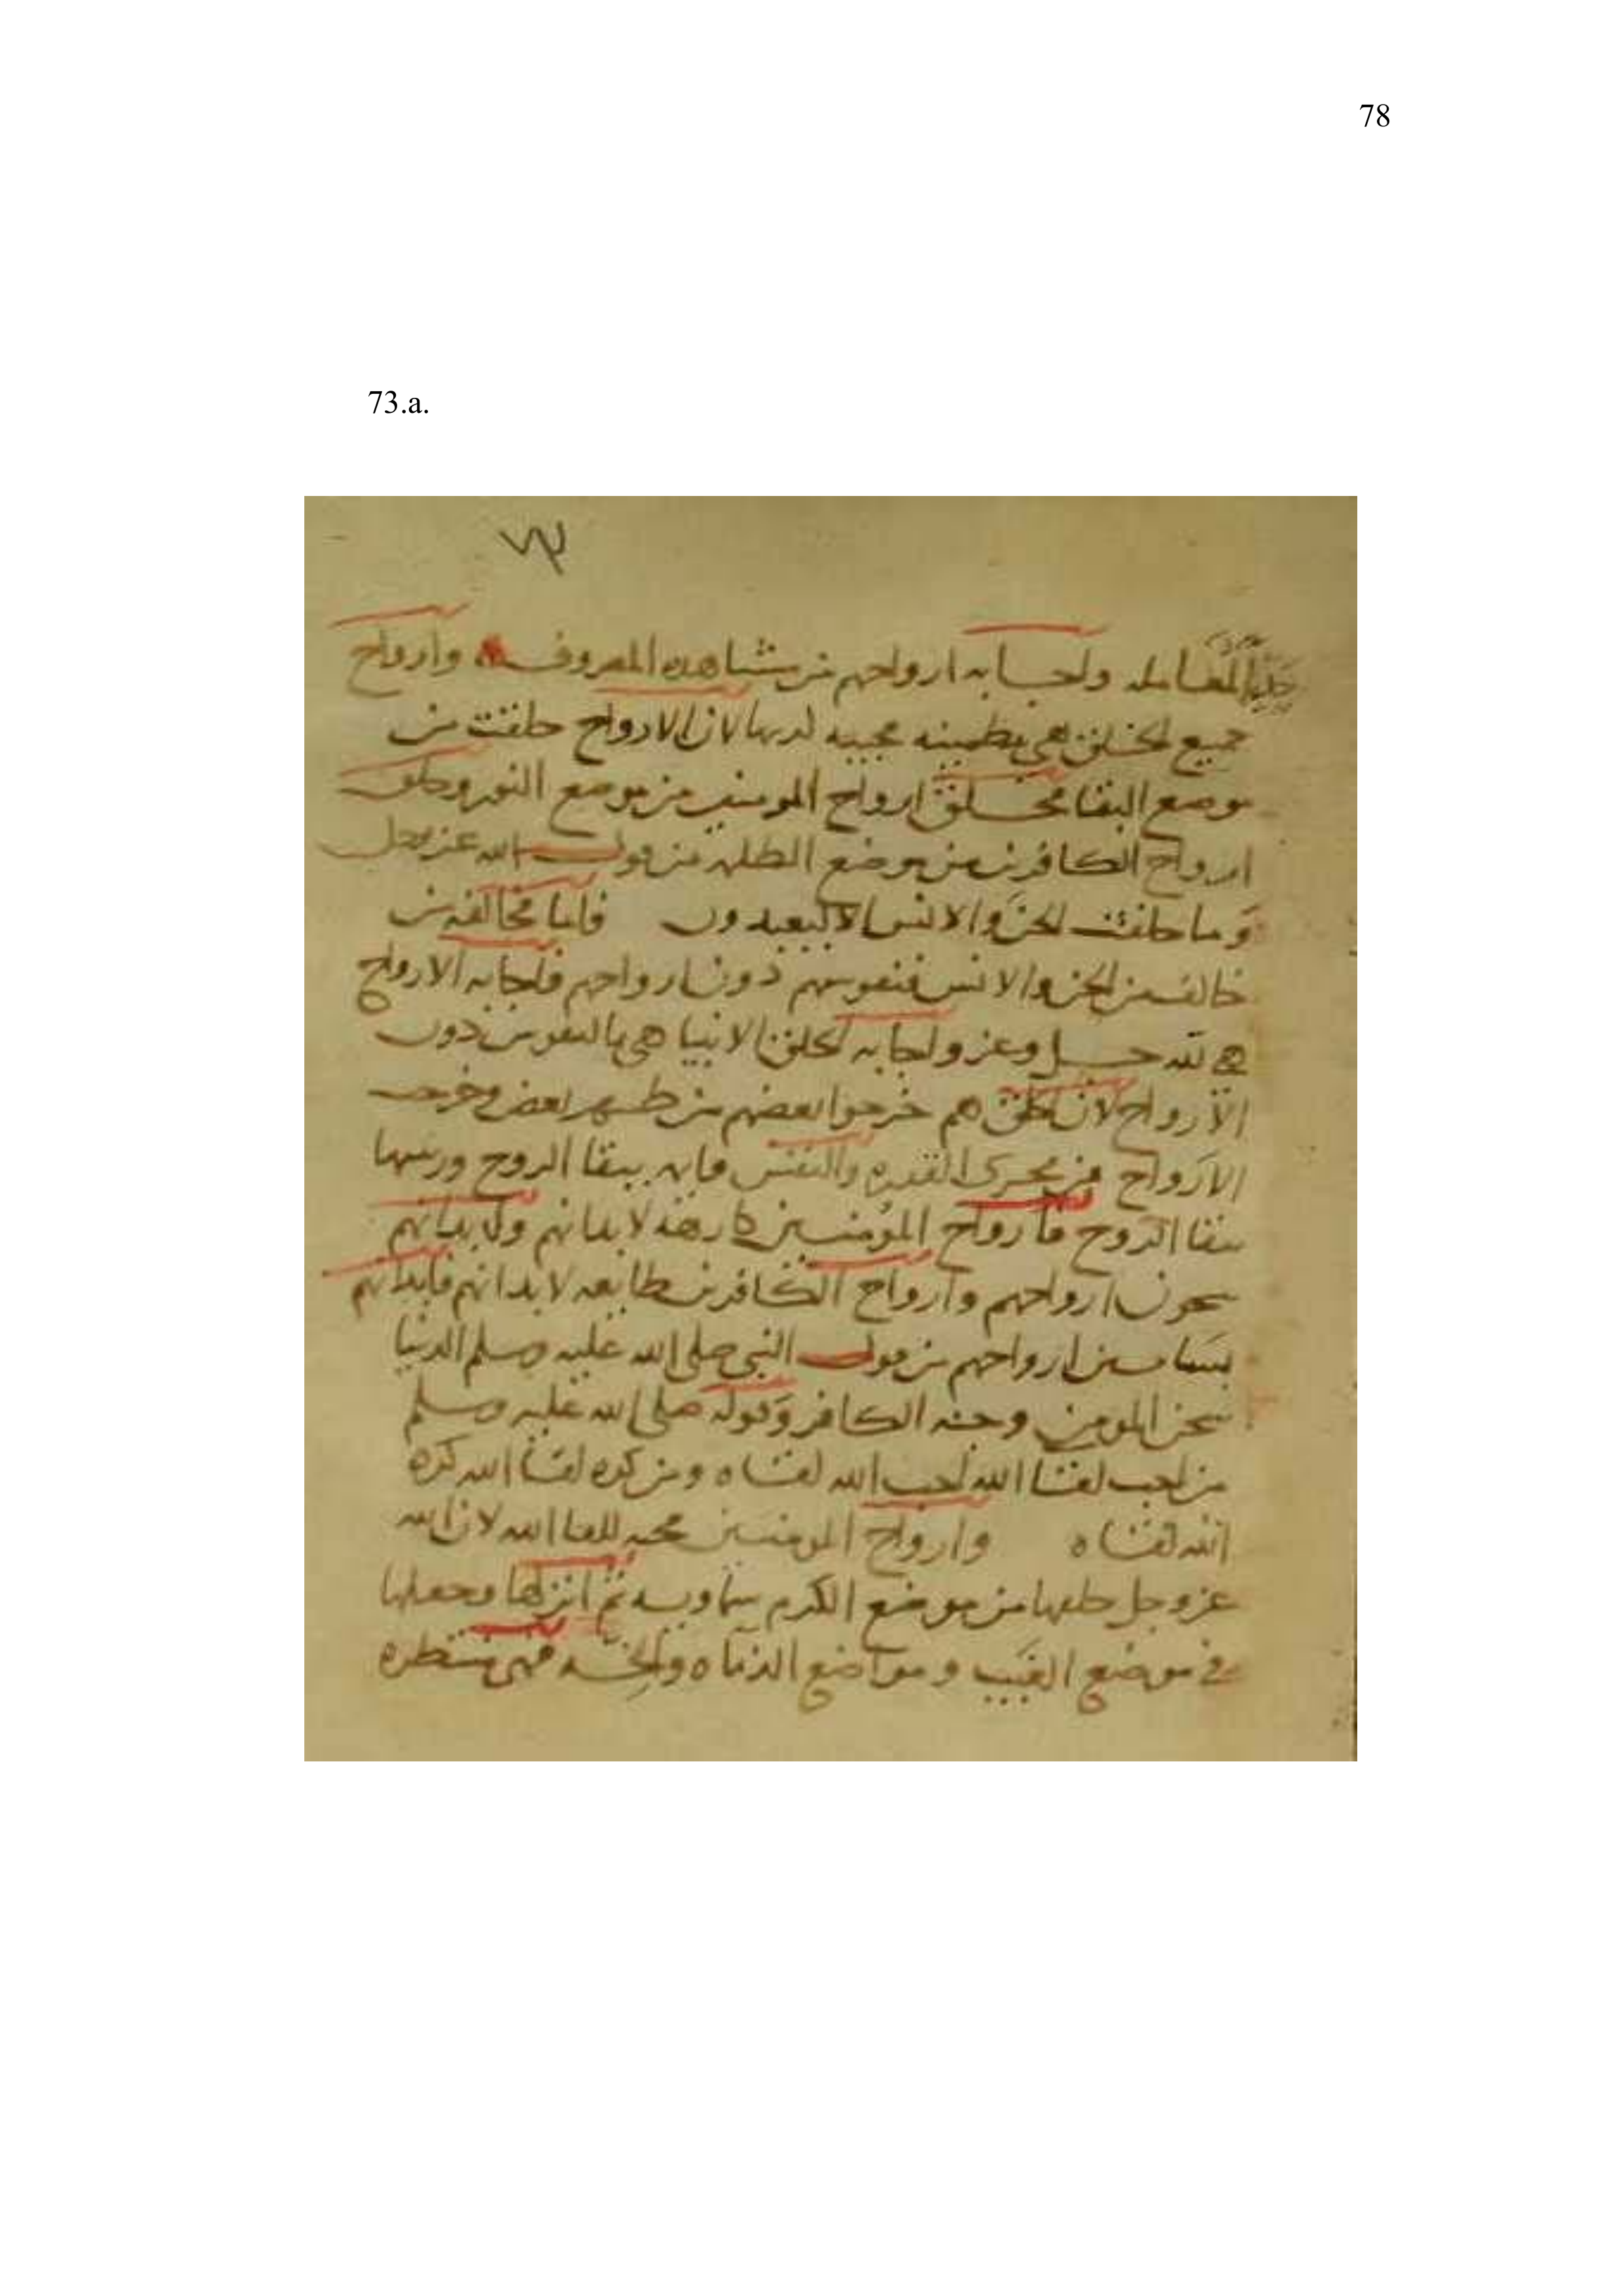 78
73.a.
٧٣
المعامله واجابه ارواحهم من مشاهده المعروف وارواح
جميع الخلق هي مطمينه مجيبه لربها لان الارواح خلقت من
موضع البقا فخلق ارواح المومنين من موضع النور وخلق
ارواح الكافرين من موضع الظلمه من قول الله عز وجل
وما خلقت الجن والانس الا ليعبدون فاما مخالفه من
خالف من الجن والانس فنفوسهم دون ارواحهم فاجابه الارواح
هي لله جل وعز واجابه الخلق الانبيا هي بالنفوس دون
الارواح لان الخلق هم خرجوا بعضهم من ظهر بعض وخرجت
الارواح من القدره والنفس ببقا الروح
ببقا الروح فارواح المؤمنين كارهه لابدانهم وابدانهم
سجون ارواحهم وارواح الكافرين طايعه لابدانهم فابدانهم
بساتين ارواحهم من قول النبي صلى الله عليه وسلم الدنيا
سجن المومن وجنه الكافر وقوله صلى الله عليه وسلم
من احب لقا الله احب الله لقاه ومن كره لقا الله كره
الله لقاه وارواح المومنين محبه للقا الله لان الله
عز وجل خلقها من موضع الكرم سماويه ثم انزلها وجعلها
في موضع الغيب ومواضع فهي منتظره